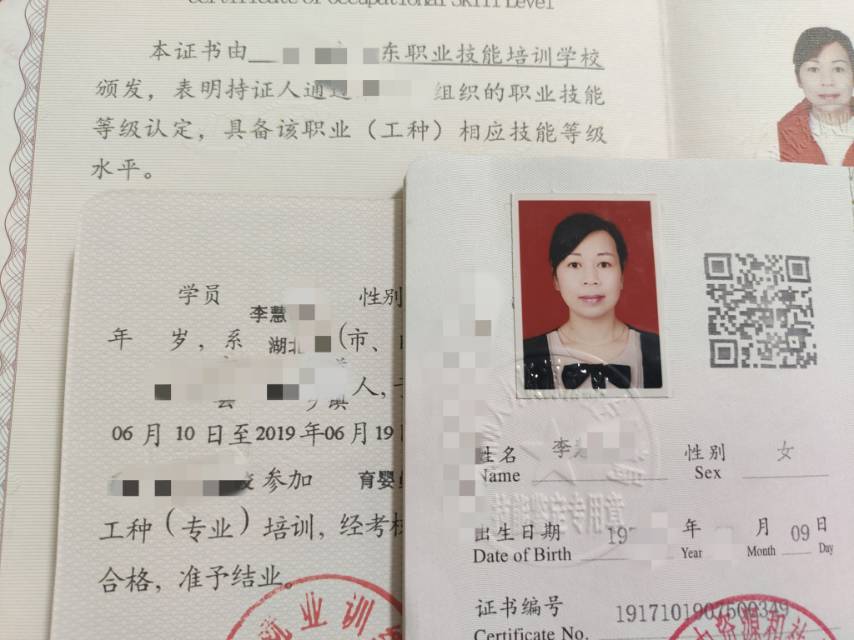 Certificate of Occupational Skill Level
本证书由 东职业技能培训学校
颁发，表明持证人通过 组织的职业技能
等级认定，具备该职业（工种）相应技能等级
水平。
学员 李慧 性别
年 岁，系 湖北 （市、
人，
06 月 10 日至 2019 年 06 月 19
参加 育婴
工种（专业）培训，经考核
合格，准予结业。
就业训
姓名 李 性别 女
Name Sex
出生日期 19 年 月 09 日
Date of Birth Year Month Day
证书编号 1917101907500349
Certificate No.
技能鉴定专用章
力资源和社